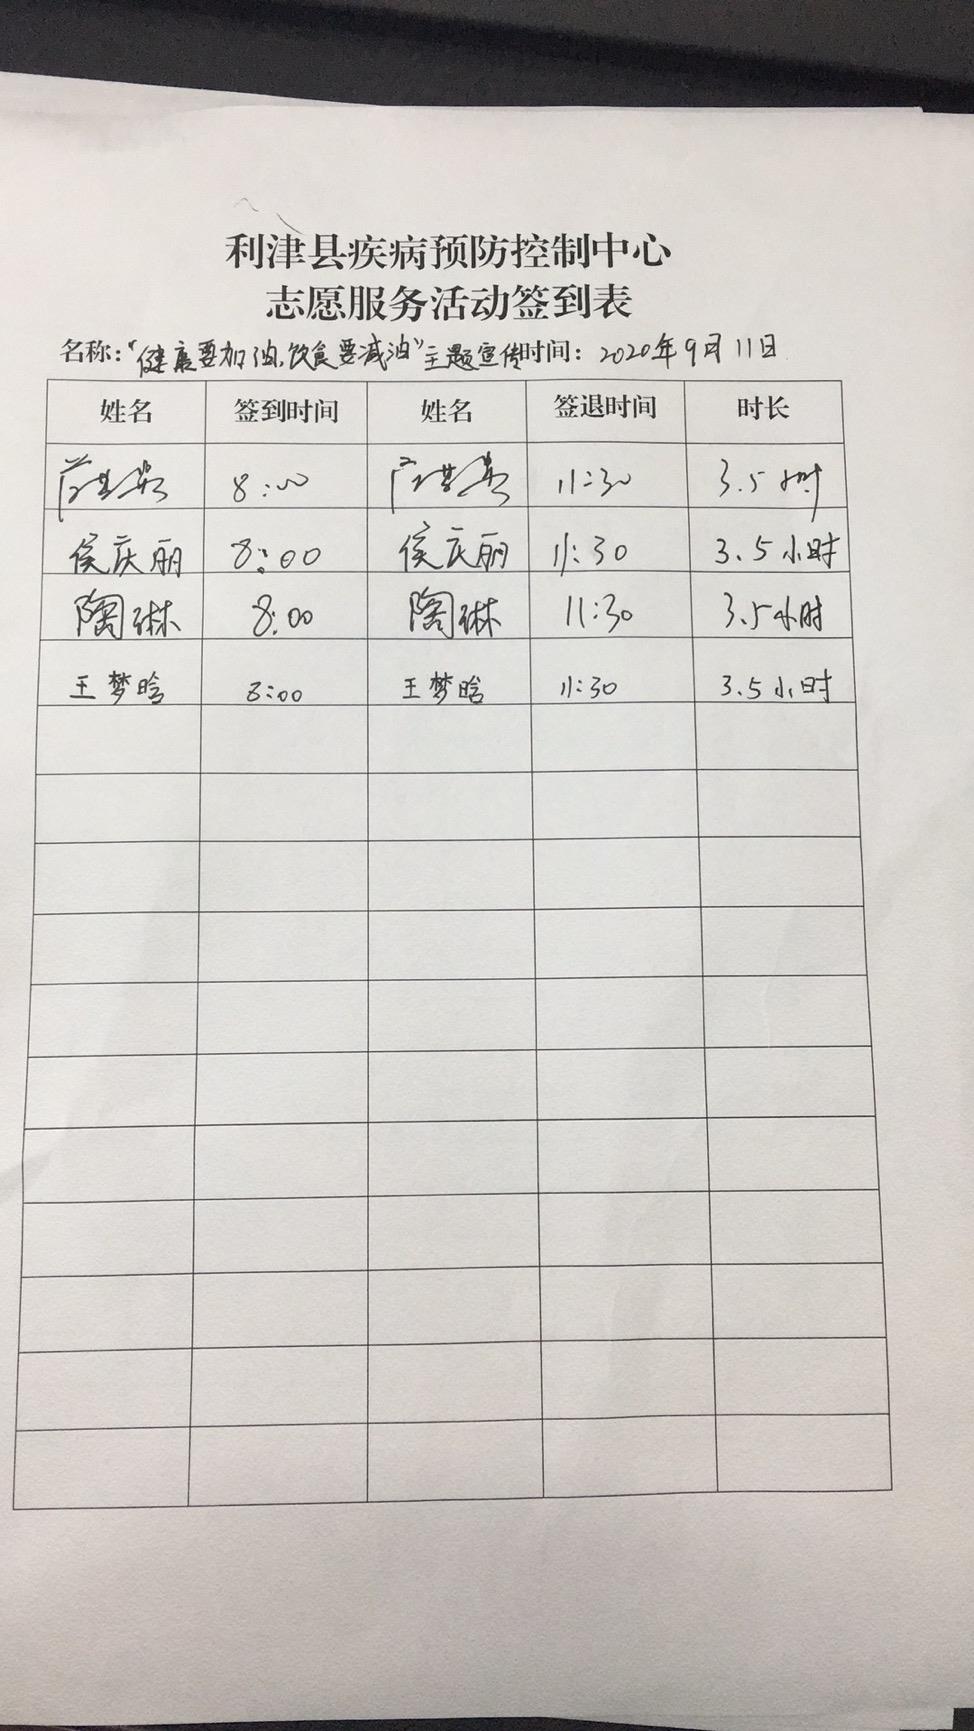 利津县疾病预防控制中心
志愿服务活动签到表
名称："健康要加油,饮食要减油"主题宣传时间：2020年9月11日
姓名 签到时间 姓名 签退时间 时长
8:00 11:30 3.5小时
侯庆丽 8:00 侯庆丽 11:30 3.5小时
陶琳 8:00 陶琳 11:30 3.5小时
王梦晗 8:00 王梦晗 11:30 3.5小时